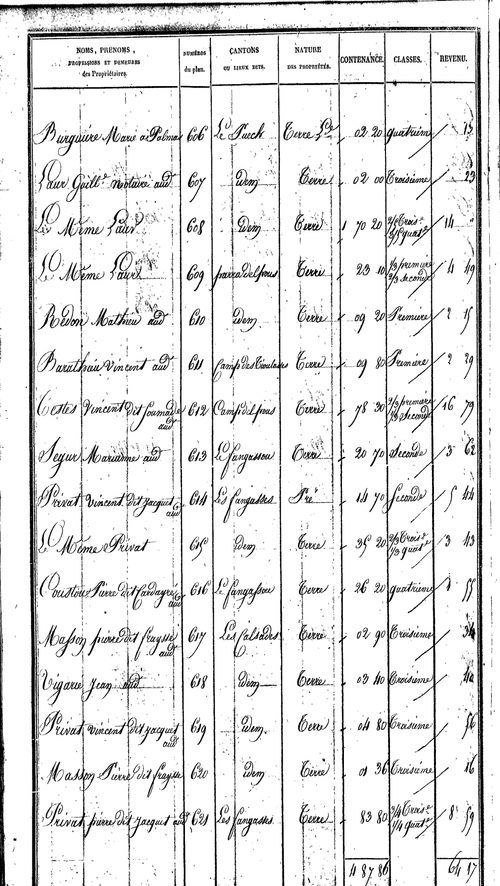 NOMS, PRÉNOMS, PROFESSIONS ET DEMEURES des Propriétaires. NUMÉROS du plan. CANTONS OU LIEUX DITS. NATURE DES PROPRIÉTÉS. CONTENANCE. CLASSES. REVENU.
Burguière Marie à Palmas 606 Le Puech Terre 02 20 quatrième 15
Laur Guill.e notaire aud 607 idem Terre 02 00 Troisième 23
Le Même Laur 608 idem Terre 1 70 20 14
Le Même Laur 609 Terre 23 10 1/3 première 2/3 seconde 4 49
Redon Mathieu aud 610 idem Terre 09 20 Première 2 15
Barathau Vincent aud 611 Terre 09 80 Première 2 29
Costes Vincent dit aud 612 Camp del pous Terre 78 30 première seconde 16 79
Segur Marianne aud 613 Le fangassou Terre 20 70 Seconde 3 62
Privat Vincent dit Jacquet aud 614 Les fangasses Pré 14 70 Seconde 5 44
Le Même Privat 615 idem Terre 35 20 3 43
Coustou Pierre dit aud 616 Le fangassou Terre 26 20 quatrième 1 55
Masson pierre dit fraysse aud 617 Les Calsades Terre 02 90 Troisième 34
Vigarie Jean aud 618 idem Terre 03 40 Troisième 40
Privat Vincent dit Jacquet aud 619 idem Terre 04 80 Troisième 56
Masson Pierre dit fraysse 620 idem Terre 01 36 Troisième 16
Privat pierre dit Jacquet aud 621 Les fangasses Terre 83 80 3/4 Trois.e 1/4 quat.e 8 59
4 87 86 64 17